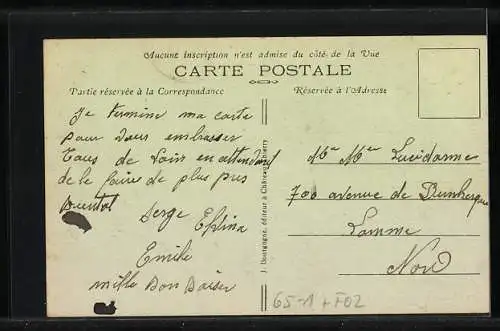 Aucune inscription n'est admise du côté de la Vue
CARTE POSTALE
Partie réservée à la Correspondance
Réservée à l'Adresse
Je termine ma carte
pour vous embrasser
Tous de loin en attendant
de le faire de plus pres
Serge
Emile
mille Bon Baiser
J. Bourgogne, éditeur à Château-Thierry
700 avenue de Dunkerque
Lomme
Nord
65-1 + F02